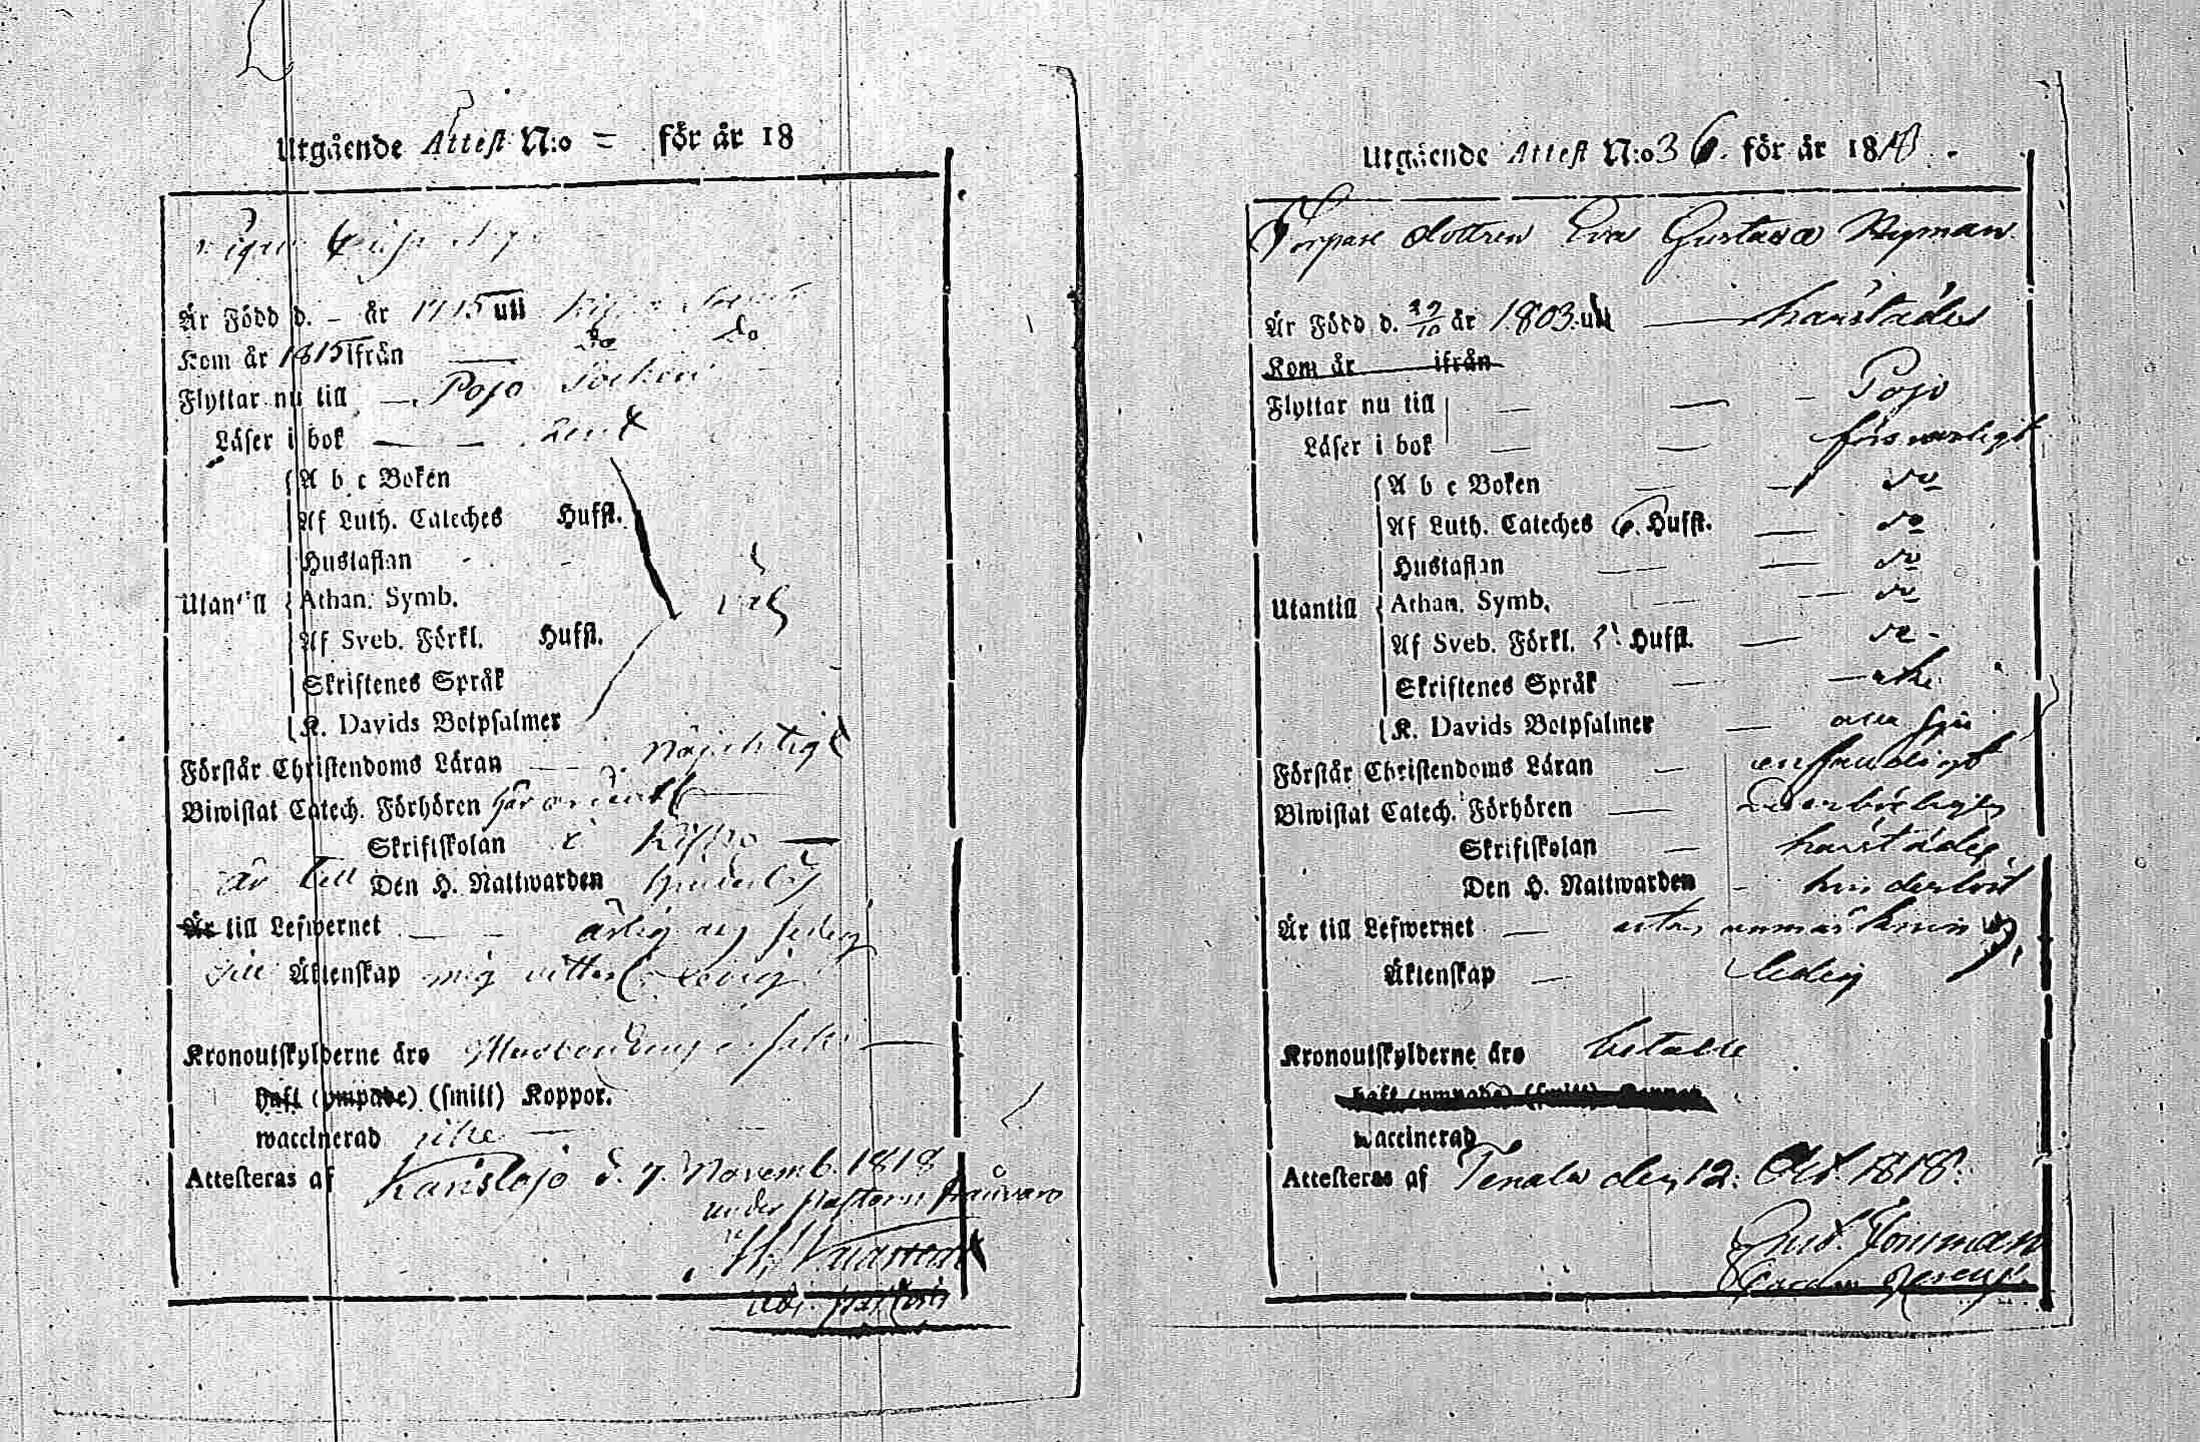 Utgående Attest N:o = för år 18
Är Född d. – år 1715 uti
Kom år 1815 ifrån — do do
Flyttar nu till — Pojo Socken
Läser i bok — rent
A b c Boken
Af Luth. Cateches Hufst.
Hustaflan
Utantill Athan. Symb.
Af Sveb. Förkl. Hufst.
Skriftenes Språk
K. Davids Botpsalmer
Förstår Christendoms Läran —
Biwistat Catech. Förhören
Skriftskolan i
är till Den H. Nattwarden
Är till Lefwernet — ärlig
till Äktenskap mig ledig
Kronoutskylderne äro
haft (ympade) (smitt) Koppor.
waccinerad icke —
Attesteras af Karislojo d. 7. Novemb. 1818
under pastoris frånvaro
adj. pastoris
Utgående Attest N:o 36. för år 1818.
Torpare dottren Eva Gustava Nyman
Är Född d. 29/10 år 1803. uti — härstädes
Kom år ifrån
Flyttar nu till — — – Pojo
Läser i bok — — försvarligt
A b c Boken — — do
Af Luth. Cateches 6. Hufst. — do
Hustaflan — — do
Utantill Athan. Symb. — — do
Af Sveb. Förkl. Hufst. — do
Skriftenes Språk —
K. Davids Botpsalmer — alla sju
Förstår Christendoms Läran — enfaldigt
Biwistat Catech. Förhören —
Skriftskolan — härstädes
Den H. Nattwarden – hinderlöst
Är till Lefwernet — utan anmärkning,
Äktenskap — ledig
Kronoutskylderne äro betalte
haft (ympade) (smitt) Koppor
waccinerad
Attesteras af Tenala den 12. Oct. 1818.